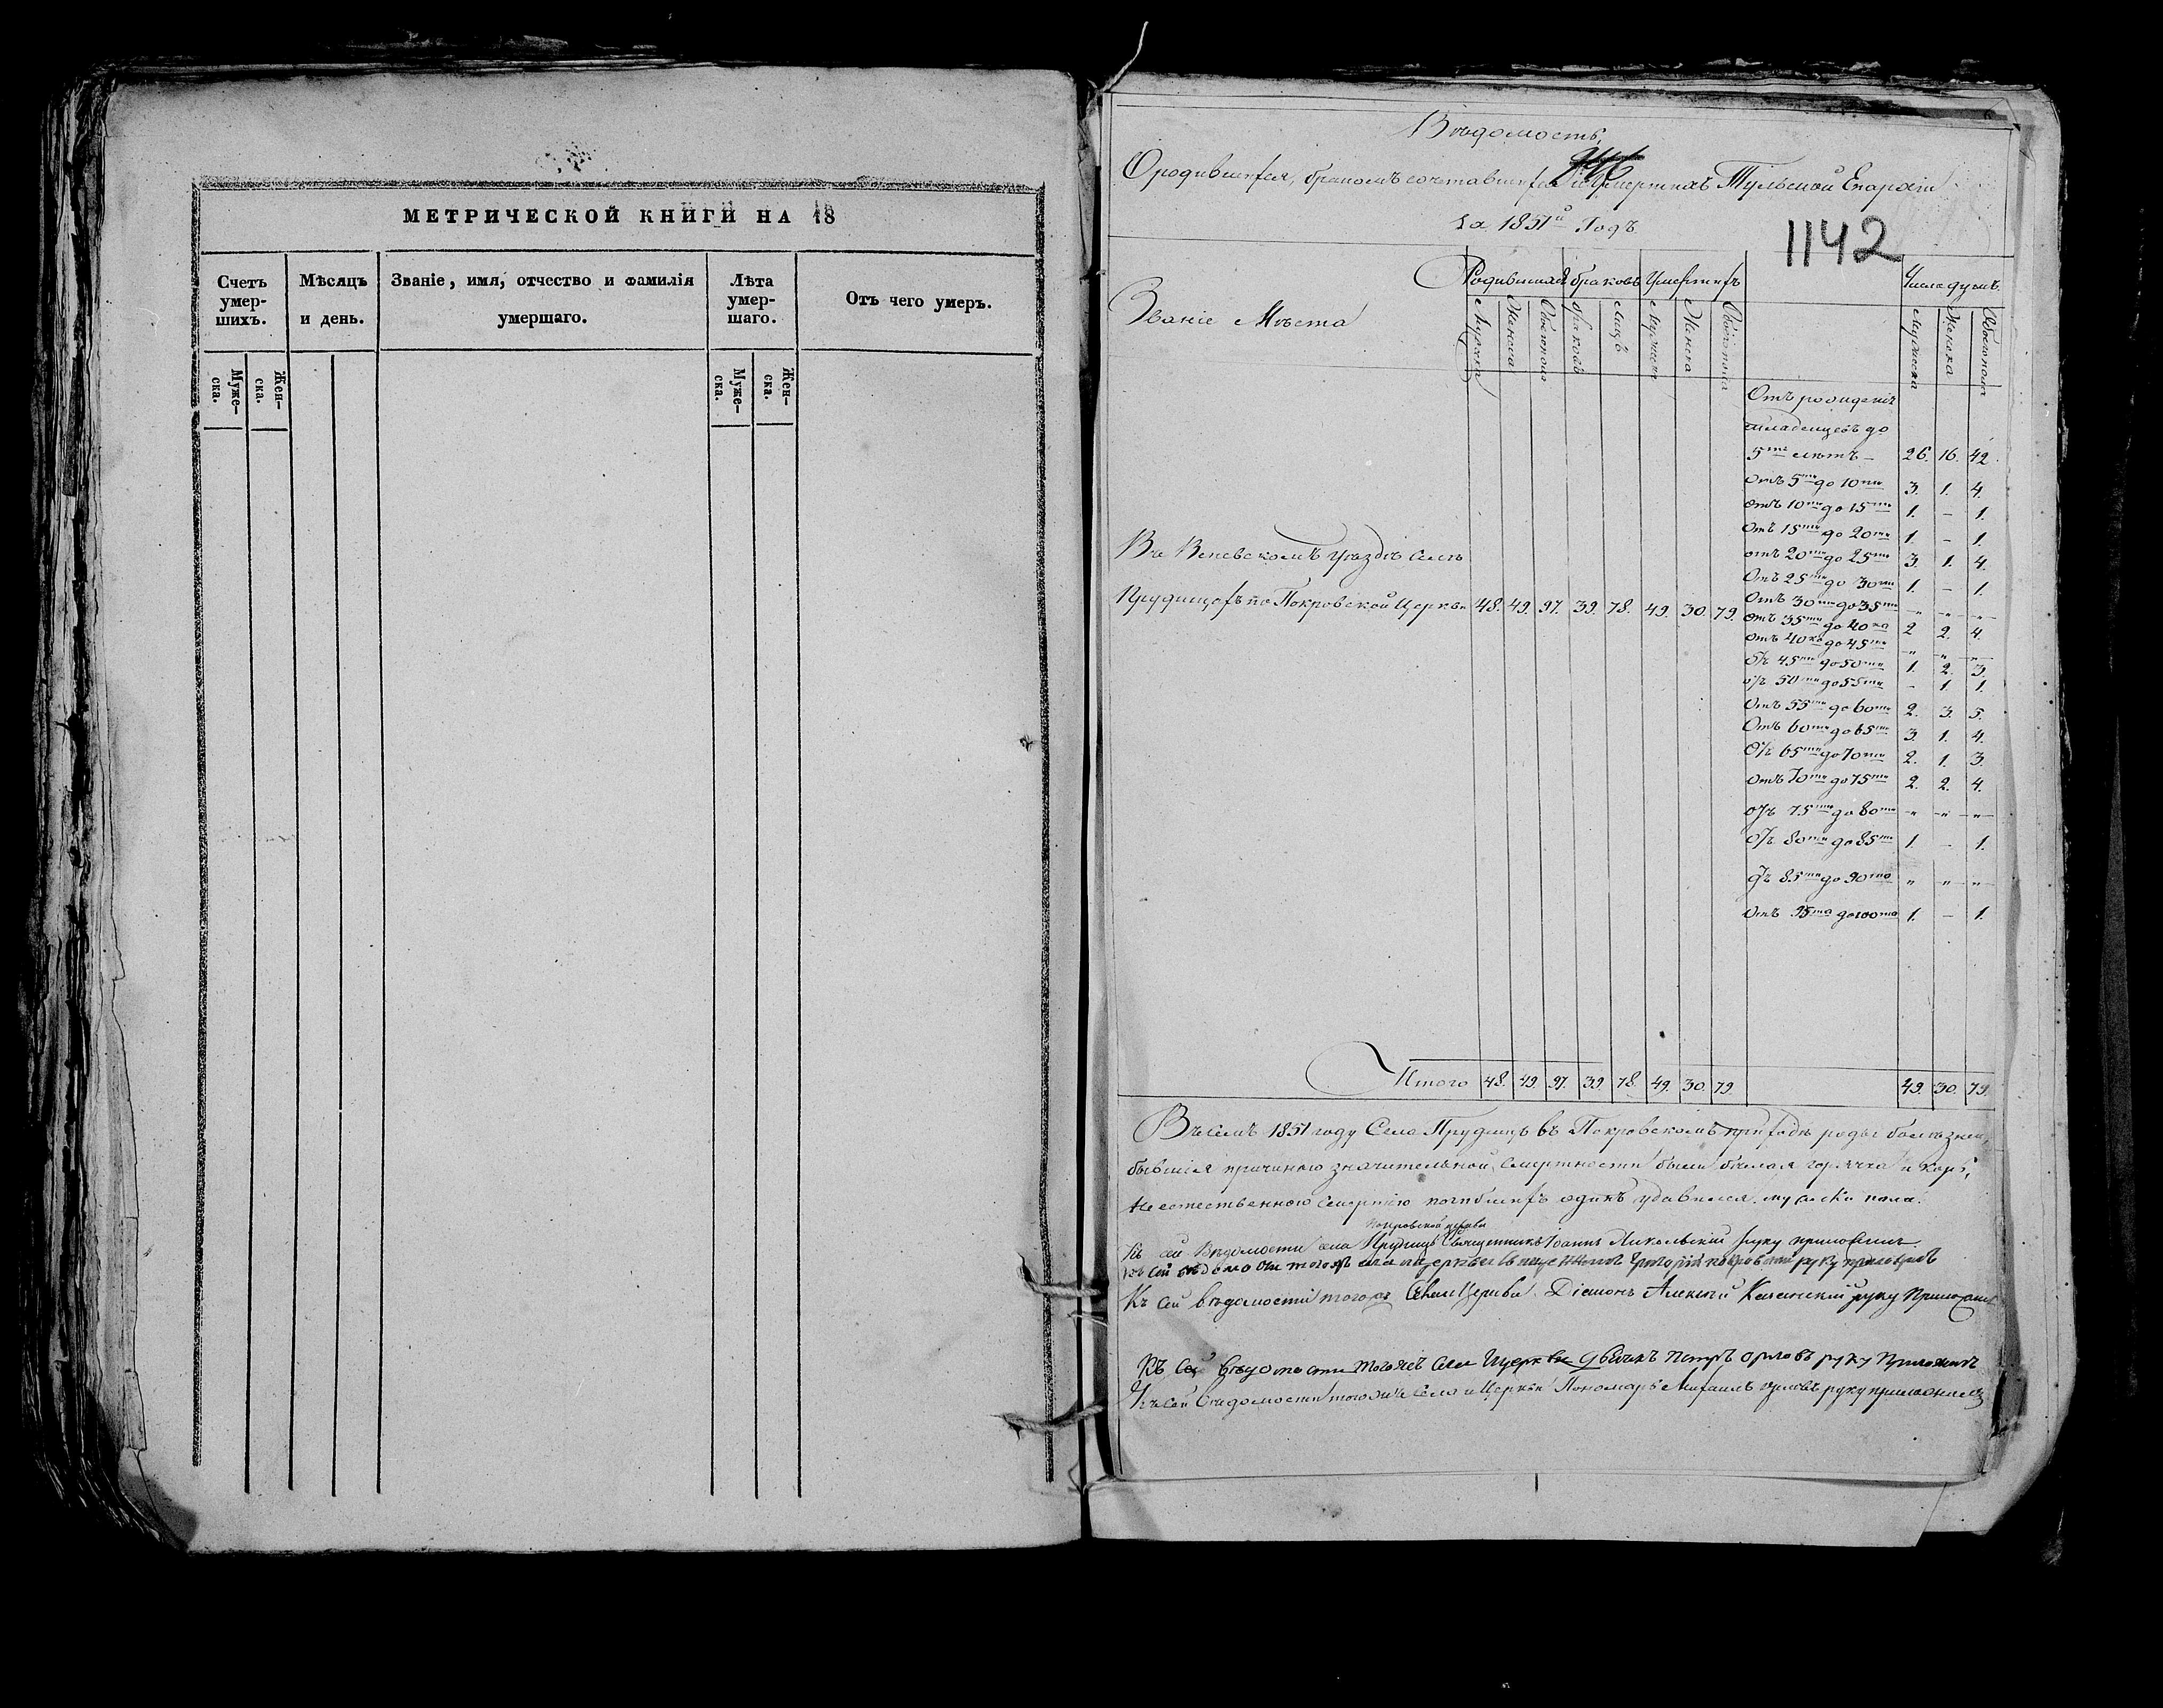 МЕТРИЧЕСКОЙ КНИГИ НА 18
Счетъ умер-шихъ.
Мѣсяцъ и день.
Званіе, имя, отчество и фамилія умершаго.
Лѣта умер-шаго.
Отъ чего умеръ.
Муже-ска.
Жен-ска.
Муже-ска.
Жен-ска.
Вѣдомость,
О родившихся, бракомъ сочетавшихся и умершихъ Тульской Епархіи
За 1851й Годъ
1142
Званіе Мѣста
Родившихся браковъ Умершихъ
Число душъ.
Мужска Женска Обоегопола браковъ лицъ Мужеска Женска Обоегопола
Мужеска Женска Обоегопола
Отъ рожденія
младенцевъ до
5ти лѣтъ – 26. 16. 42.
Отъ 5ти до 10ти 3. 1. 4.
отъ 10ти до 15ти 1. – 1.
отъ 15ти до 20ти 1. – 1.
отъ 20ти до 25ти 3. 1. 4.
Отъ 25ти до 30ти 1. – 1.
Отъ 30ти до 35ти „ „ „
отъ 35ти до 40ка 2 2. 4.
отъ 40ка до 45ти „ „ „
Отъ 45ти до 50ти 1. 2. 3.
отъ 50ти до 55ти – 1. 1.
Отъ 55ти до 60ти 2. 3. 5.
Отъ 60ти до 65ти 3. 1. 4.
Отъ 65ти до 70ти 2. 1. 3.
Отъ 70ти до 75ти 2. 2. 4.
отъ 75ти до 80ти „ „ „
отъ 80ти до 85ти 1. – 1.
отъ 85ти до 90то „ „ „
Отъ 95та до 100та 1. – 1.
Въ Веневскомъ уѣздѣ Селѣ
Прудищахъ по Покровской Церкви 48. 49. 97. 39. 78. 49. 30. 79.
Итого 48. 49. 97. 39. 78. 49. 30. 79 49. 30. 79.
Въ семъ 1851 году Села Прудищъ въ Покровскомъ приходѣ роды болѣзней,
бывшія причиною значительной смертности были бѣлая горячка и корь,
Не естественною смертію погибшихъ одинъ удавился мужска пола.
Покровской церкви
Къ сей Вѣдомости села Прудищъ Священникъ Іоаннъ Никольскій руку приложилъ
Къ сей вѣдомости тогожъ села и церкви Священникъ Григорій Покровскій руку приложилъ
Къ сей вѣдомости тогожъ Села и Церкви Діаконъ Алексѣй руку Приложилъ
Къ сей вѣдомости тогоже Села и Церкви Дьячекъ Петръ Орловъ руку Приложилъ
Къ сей вѣдомости тогоже Села и Церкви Пономарь Михаилъ Орловъ руку приложилъ